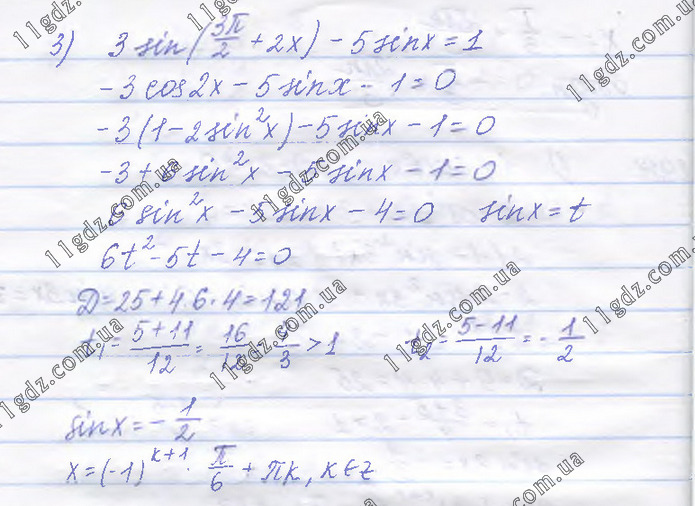 3) 3 sin(3π/2 + 2x) - 5 sinx = 1
-3 cos2x - 5 sinx - 1 = 0
-3(1 - 2sin²x) - 5 sinx - 1 = 0
-3 + 6 sin²x - 5 sinx - 1 = 0
6 sin²x - 5 sinx - 4 = 0 sinx = t
6t² - 5t - 4 = 0
D = 25 + 4·6·4 = 121
t₁ = (5+11)/12 = 16/12 = 4/3 > 1 t₂ = (5-11)/12 = -1/2
sinx = -1/2
x = (-1)^(k+1) · π/6 + πk, k∈z
11gdz.com.ua
11gdz.com.ua
11gdz.com.ua
11gdz.com.ua
11gdz.com.ua
11gdz.com.ua
11gdz.com.ua
11gdz.com.ua
11gdz.com.ua
11gdz.com.ua